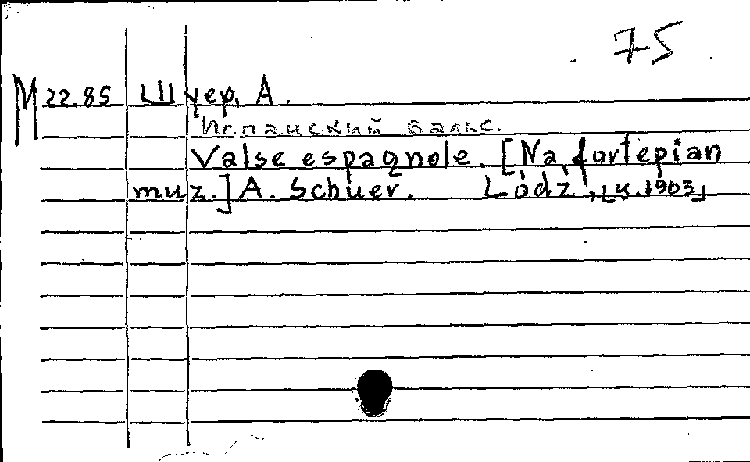 75
M 22.85 Шуер, А.
Испанский вальс.
Valse espagnole. [Na fortepian
muz.] A. Schuer. Łódź, [к. 1903]